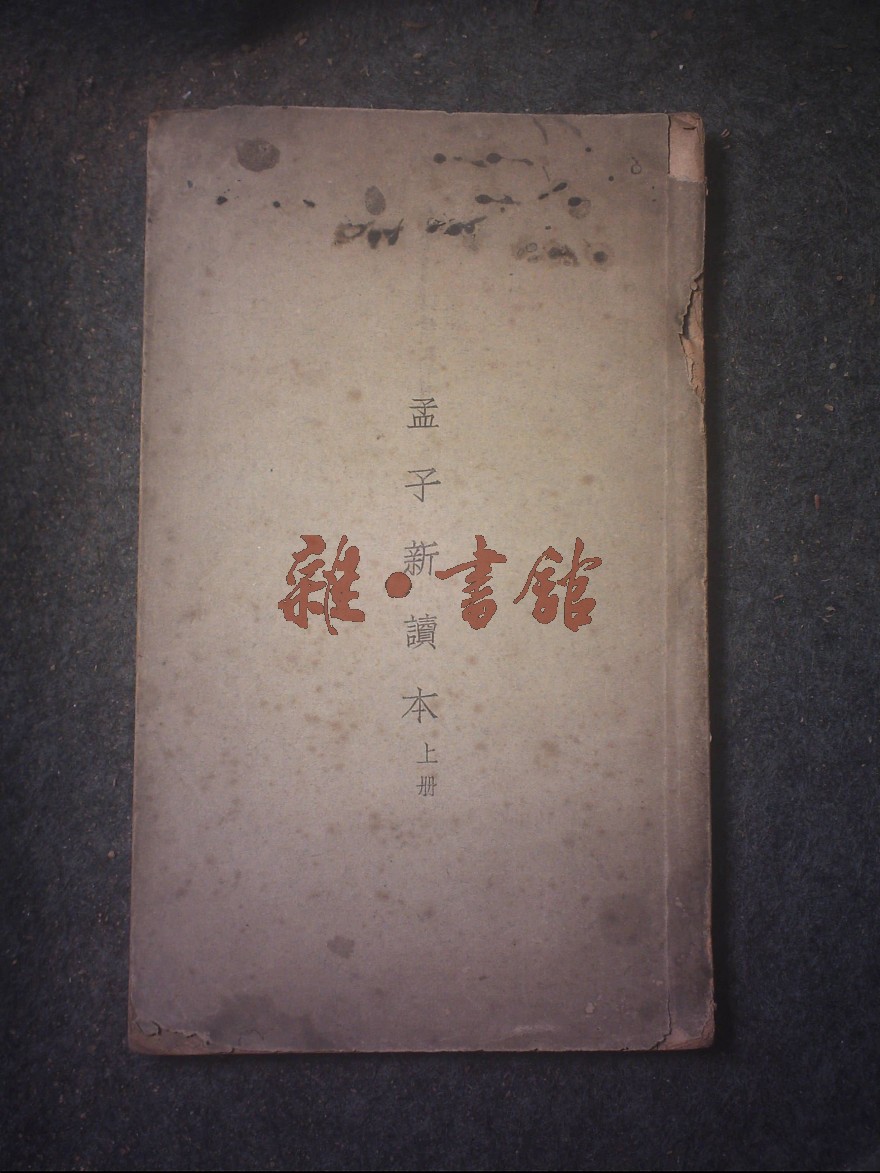 孟子新讀本
上册
雜·書館